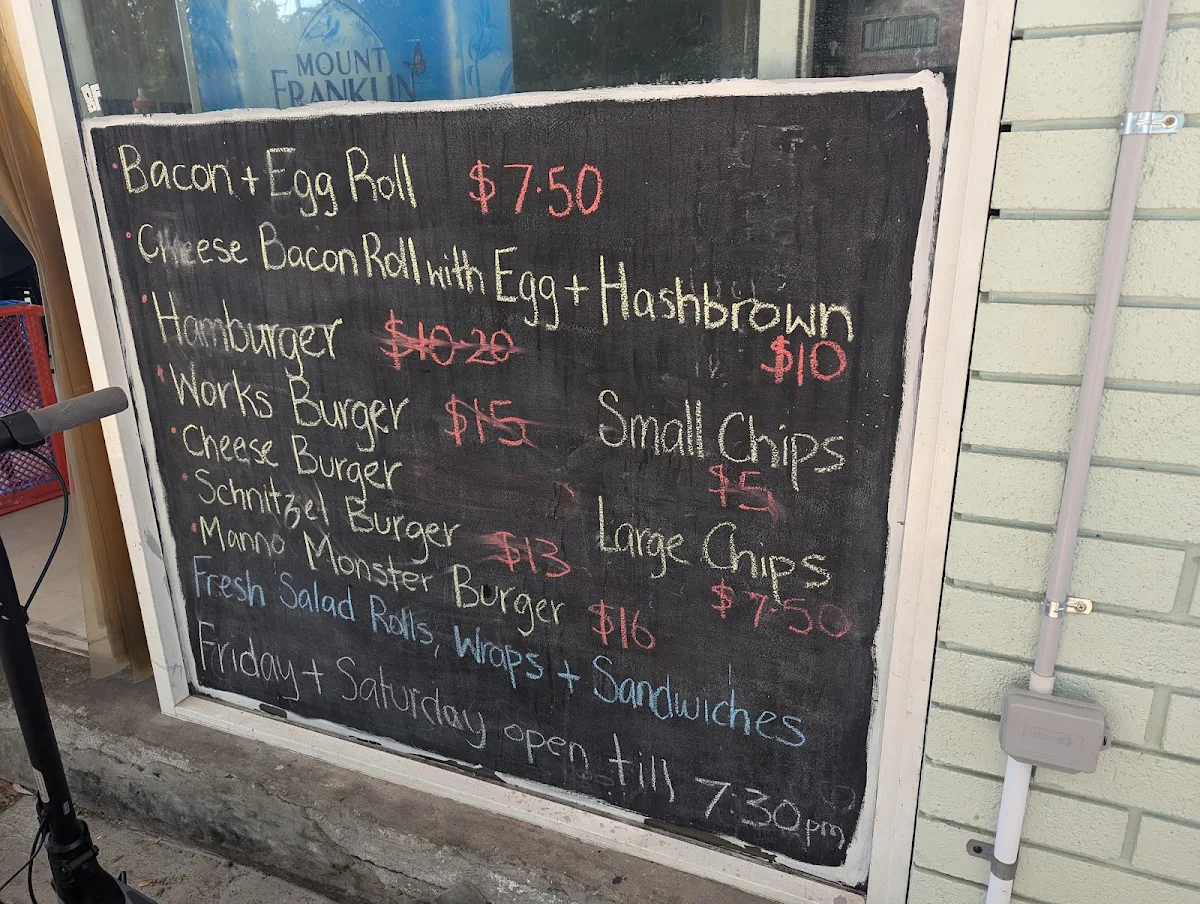 MOUNT
FRANKLIN
Bacon + Egg Roll $7.50
Cheese Bacon Roll with Egg + Hashbrown
$10
Hamburger $10-20
Works Burger $15
Cheese Burger
Schnitzel Burger $13
Manno Monster Burger $16
Small Chips
$5
Large Chips
$7.50
Fresh Salad Rolls, Wraps + Sandwiches
Friday + Saturday open till 7:30pm